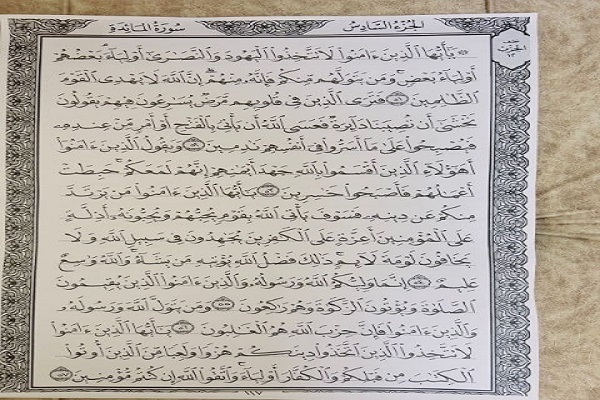 الجزء السادس
سورة المائدة
۞ يَٰٓأَيُّهَا ٱلَّذِينَ ءَامَنُوا۟ لَا تَتَّخِذُوا۟ ٱلْيَهُودَ وَٱلنَّصَٰرَىٰٓ أَوْلِيَآءَ بَعْضُهُمْ
أَوْلِيَآءُ بَعْضٍ وَمَن يَتَوَلَّهُم مِّنكُمْ فَإِنَّهُۥ مِنْهُمْ إِنَّ ٱللَّهَ لَا يَهْدِى ٱلْقَوْمَ
ٱلظَّٰلِمِينَ ٥١ فَتَرَى ٱلَّذِينَ فِى قُلُوبِهِم مَّرَضٌ يُسَٰرِعُونَ فِيهِمْ يَقُولُونَ
نَخْشَىٰٓ أَن تُصِيبَنَا دَآئِرَةٌ فَعَسَى ٱللَّهُ أَن يَأْتِىَ بِٱلْفَتْحِ أَوْ أَمْرٍ مِّنْ عِندِهِۦ
فَيُصْبِحُوا۟ عَلَىٰ مَآ أَسَرُّوا۟ فِىٓ أَنفُسِهِمْ نَٰدِمِينَ ٥٢ وَيَقُولُ ٱلَّذِينَ ءَامَنُوٓا۟
أَهَٰٓؤُلَآءِ ٱلَّذِينَ أَقْسَمُوا۟ بِٱللَّهِ جَهْدَ أَيْمَٰنِهِمْ إِنَّهُمْ لَمَعَكُمْ حَبِطَتْ
أَعْمَٰلُهُمْ فَأَصْبَحُوا۟ خَٰسِرِينَ ٥٣ يَٰٓأَيُّهَا ٱلَّذِينَ ءَامَنُوا۟ مَن يَرْتَدَّ
مِنكُمْ عَن دِينِهِۦ فَسَوْفَ يَأْتِى ٱللَّهُ بِقَوْمٍ يُحِبُّهُمْ وَيُحِبُّونَهُۥٓ أَذِلَّةٍ
عَلَى ٱلْمُؤْمِنِينَ أَعِزَّةٍ عَلَى ٱلْكَٰفِرِينَ يُجَٰهِدُونَ فِى سَبِيلِ ٱللَّهِ وَلَا
يَخَافُونَ لَوْمَةَ لَآئِمٍ ذَٰلِكَ فَضْلُ ٱللَّهِ يُؤْتِيهِ مَن يَشَآءُ وَٱللَّهُ وَٰسِعٌ
عَلِيمٌ ٥٤ إِنَّمَا وَلِيُّكُمُ ٱللَّهُ وَرَسُولُهُۥ وَٱلَّذِينَ ءَامَنُوا۟ ٱلَّذِينَ يُقِيمُونَ
ٱلصَّلَوٰةَ وَيُؤْتُونَ ٱلزَّكَوٰةَ وَهُمْ رَٰكِعُونَ ٥٥ وَمَن يَتَوَلَّ ٱللَّهَ وَرَسُولَهُۥ
وَٱلَّذِينَ ءَامَنُوا۟ فَإِنَّ حِزْبَ ٱللَّهِ هُمُ ٱلْغَٰلِبُونَ ٥٦ يَٰٓأَيُّهَا ٱلَّذِينَ ءَامَنُوا۟
لَا تَتَّخِذُوا۟ ٱلَّذِينَ ٱتَّخَذُوا۟ دِينَكُمْ هُزُوًا وَلَعِبًا مِّنَ ٱلَّذِينَ أُوتُوا۟
ٱلْكِتَٰبَ مِن قَبْلِكُمْ وَٱلْكُفَّارَ أَوْلِيَآءَ وَٱتَّقُوا۟ ٱللَّهَ إِن كُنتُم مُّؤْمِنِينَ ٥٧
١١٧